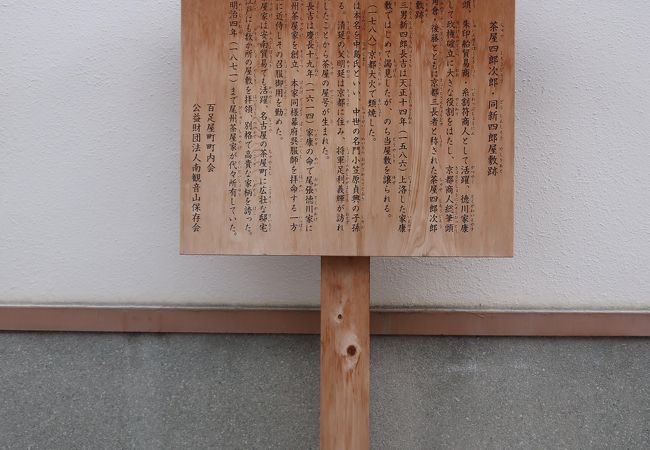 茶屋四郎次郎・同新四郎屋敷跡
頭、朱印船貿易商、糸割符商人として活躍、徳川家康
して政権確立に大きな役割をはたし、京都商人総筆頭
角倉、後藤とともに京都三長者と称された茶屋四郎次郎
敷跡。
三男新四郎長吉は天正十四年(一五八六)上洛した家康
敷ではじめて謁見したが、のち当屋敷を譲られる。
(一七八八)京都大火で類焼した。
は本名を中島氏といい、中世の名門小笠原貞興の子孫
る。清延の父明延は京都に住み、将軍足利義輝が訪れ
したことから茶屋の屋号が生まれた。
長吉は慶長十九年(一六一四)家康の命で尾張徳川家に
州茶屋家を創立、本家同様幕府呉服師を拝命する一方
に近侍しその召服御用を勤めた。
屋家は安南貿易でも活躍、名古屋の茶屋町に広壮な邸宅
にも数か所の屋敷を拝領、別格で高貴な家柄を誇った。
明治四年(一八七一)まで尾州茶屋家が代々所有していた。
百足屋町町内会
公益財団法人南観音山保存会